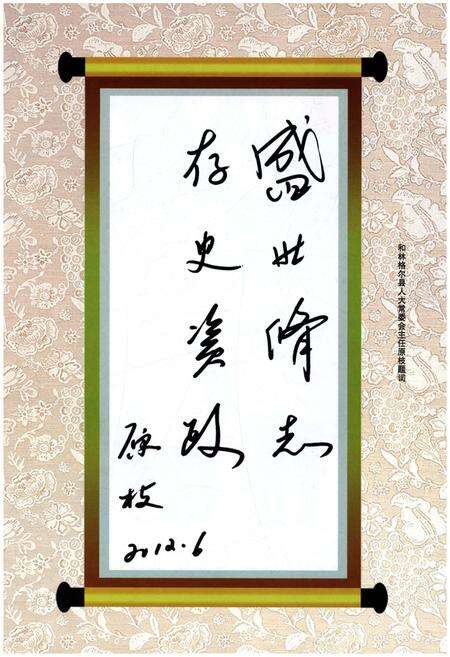 和林格尔县人大常委会主任原枝题词
盛世修志
存史资政
原枝
2012.6